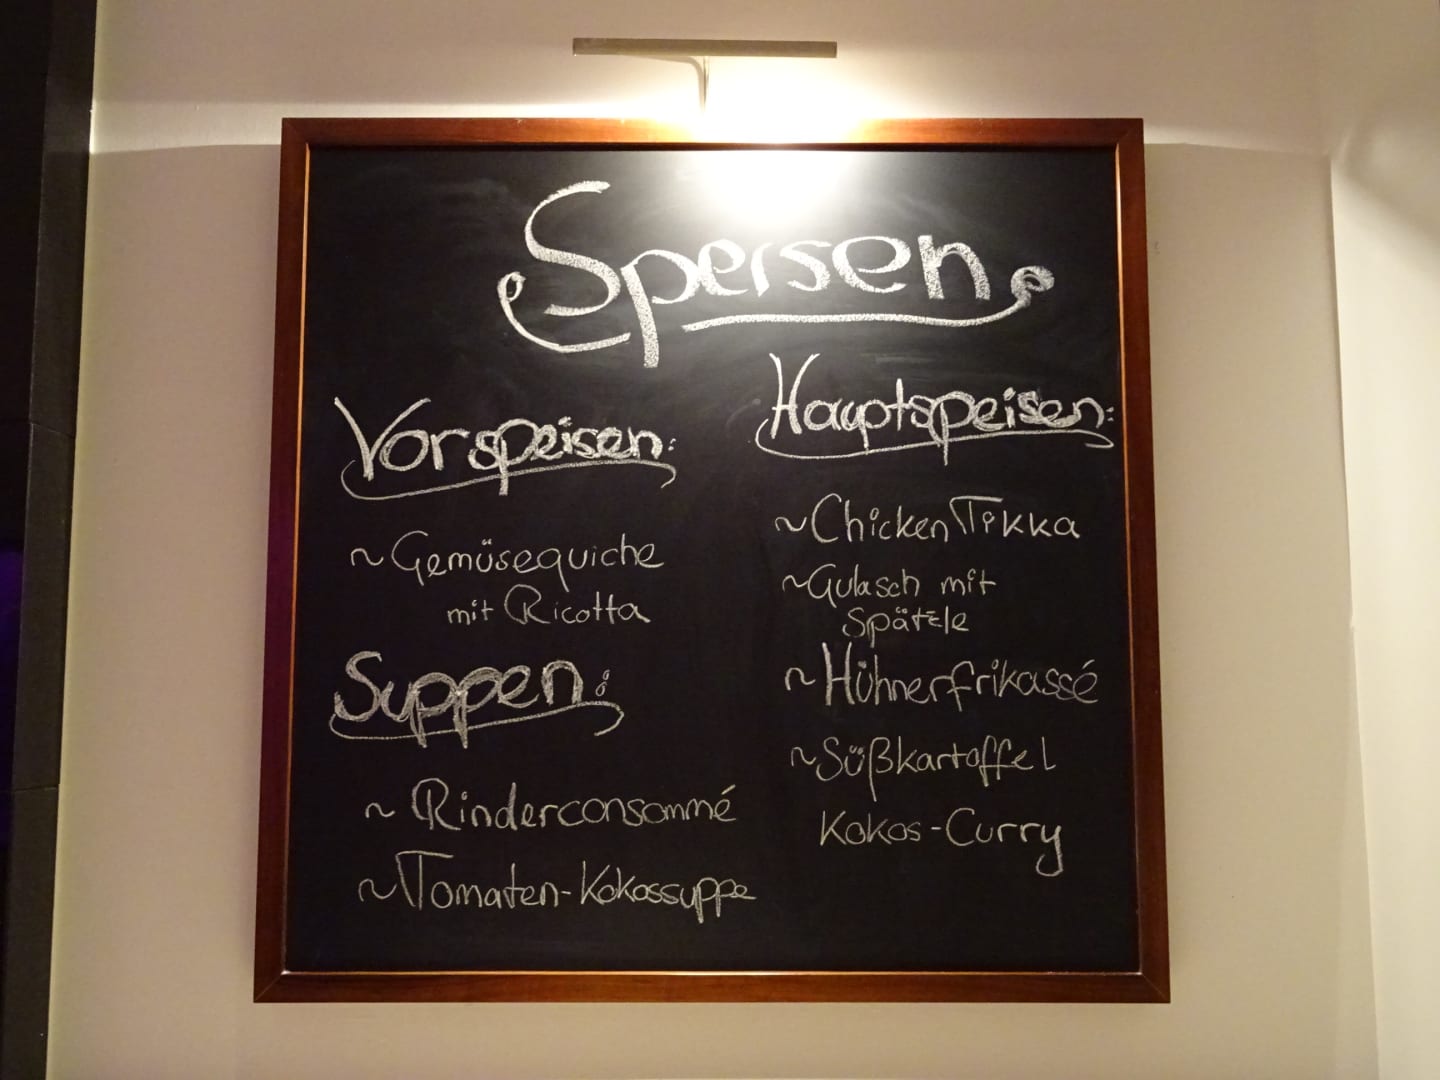 Speisen
Vorspeisen:
~ Gemüsequiche
mit Ricotta
Suppen:
~ Rinderconsommé
~ Tomaten-Kokossuppe
Hauptspeisen:
~ Chicken Tikka
~ Gulasch mit
Spätzle
~ Hühnerfrikassé
~ Süßkartoffel
Kokos-Curry